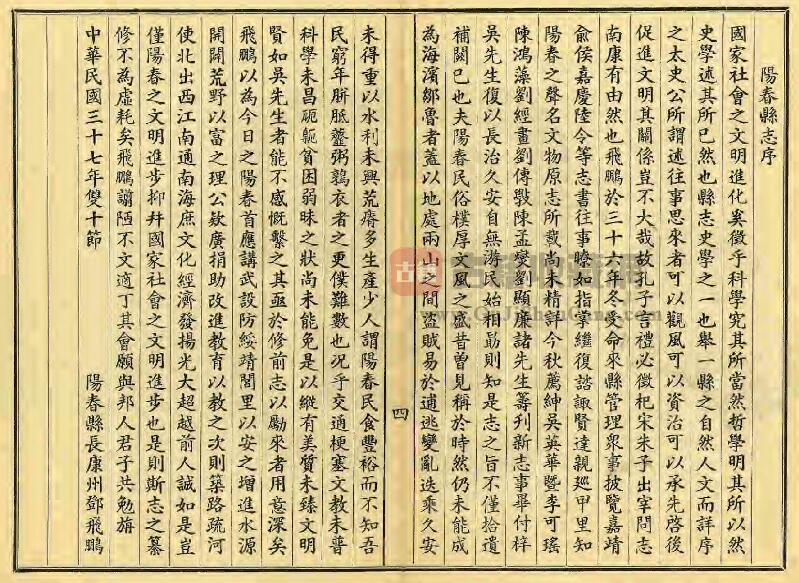 陽春縣志序
國家社會之文明進化奚徵乎科學究其所當然哲學明其所以然
史學述其所已然也縣志史學之一也舉一縣之自然人文而詳序
之太史公所謂述往事思來者可以觀風可以資治可以承先啓後
促進文明其關係豈不大哉故孔子言禮必徵杞宋朱子出宰問志
南康有由然也飛鵬於三十六年冬受命來縣管理眾事披覽嘉靖
俞侯嘉慶陸令等志書往事瞭如指掌繼復諮諏賢達親廵甲里知
陽春之聲名文物原志所載尚未精詳今秋薦紳吳英華暨李可瑤
陳鴻藻劉經畫劉傳斅陳孟爕劉顯廉諸先生籌刋新志事畢付梓
吳先生復以長治久安自無游民始相勖則知是志之旨不僅拾遺
補闕已也夫陽春民俗樸厚文風之盛昔曽見稱於時然仍未能成
為海濱鄒魯者蓋以地處兩山之間盜賊易於逋逃變亂迭乘久安
四
未得重以水利未興荒瘠多生產少人謂陽春民食豐裕而不知吾
民窮年胼胝虀粥鶉衣者之更僕難數也况乎交通梗塞文教未普
科學未昌阨貧困弱昧之狀尚未能免是以縱有美質未臻文明
賢如吳先生者能不感慨繫之其亟於修前志以勵來者用意深矣
飛鵬以為今日之陽春首應講武設防綏靖閭里以安之增進水源
開闢荒野以富之理公欵廣捐助改進教育以教之次則築路疏河
使北出西江南通南海庶文化經濟發揚光大超越前人誠如是豈
僅陽春之文明進步抑幷國家社會之文明進步也是則斯志之纂
修不為虛耗矣飛鵬謭陋不文適丁其會願與邦人君子共勉旃
中華民國三十七年雙十節
陽春縣長康州鄧飛鵬
www.GuJiShouCang.com